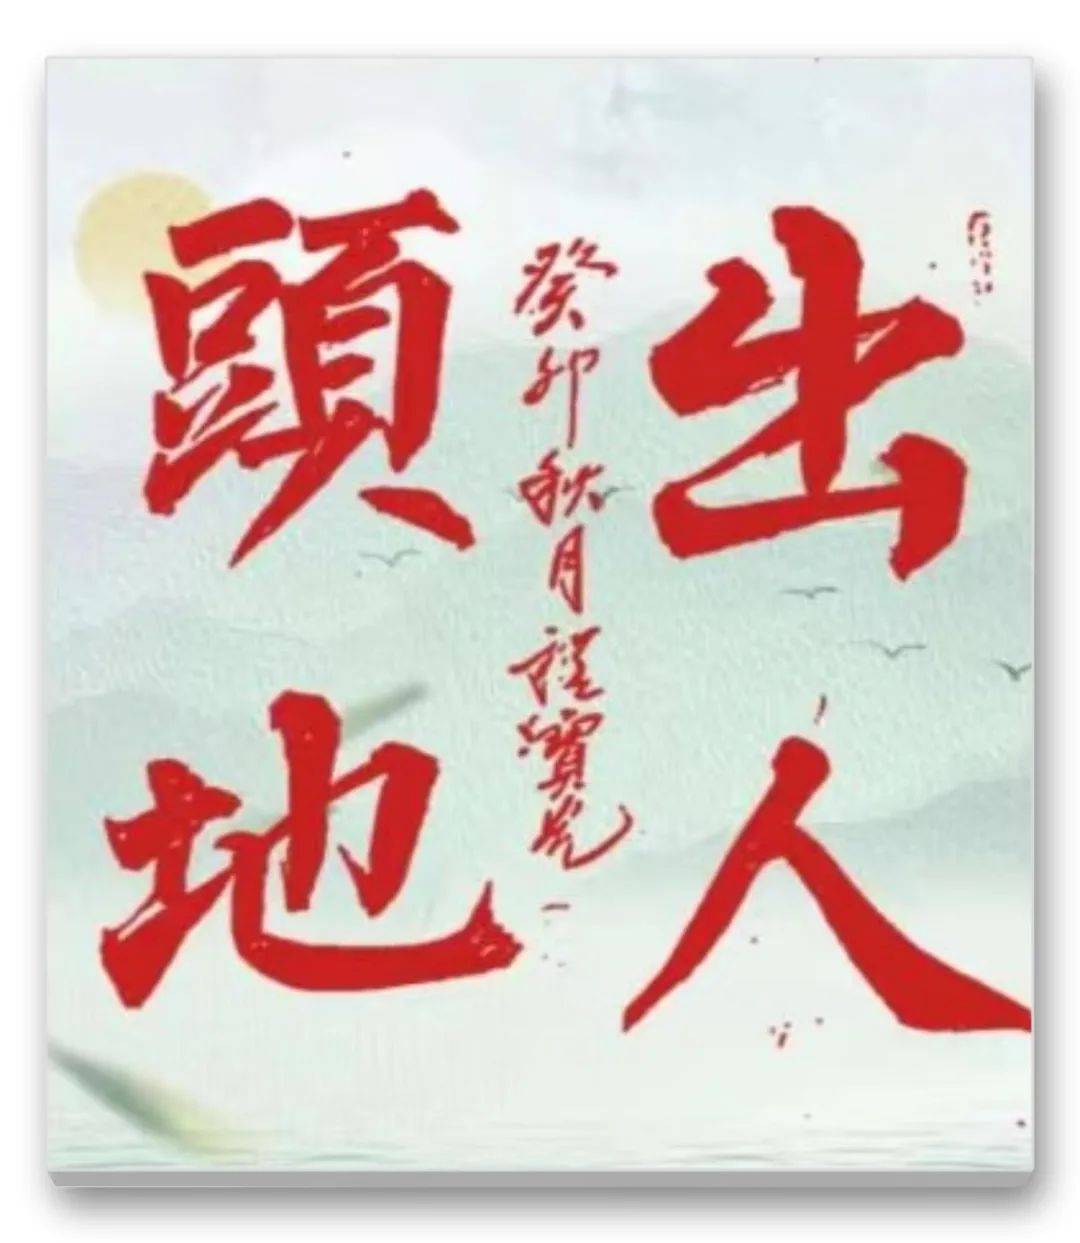 出人
頭地
癸卯秋月程寶光